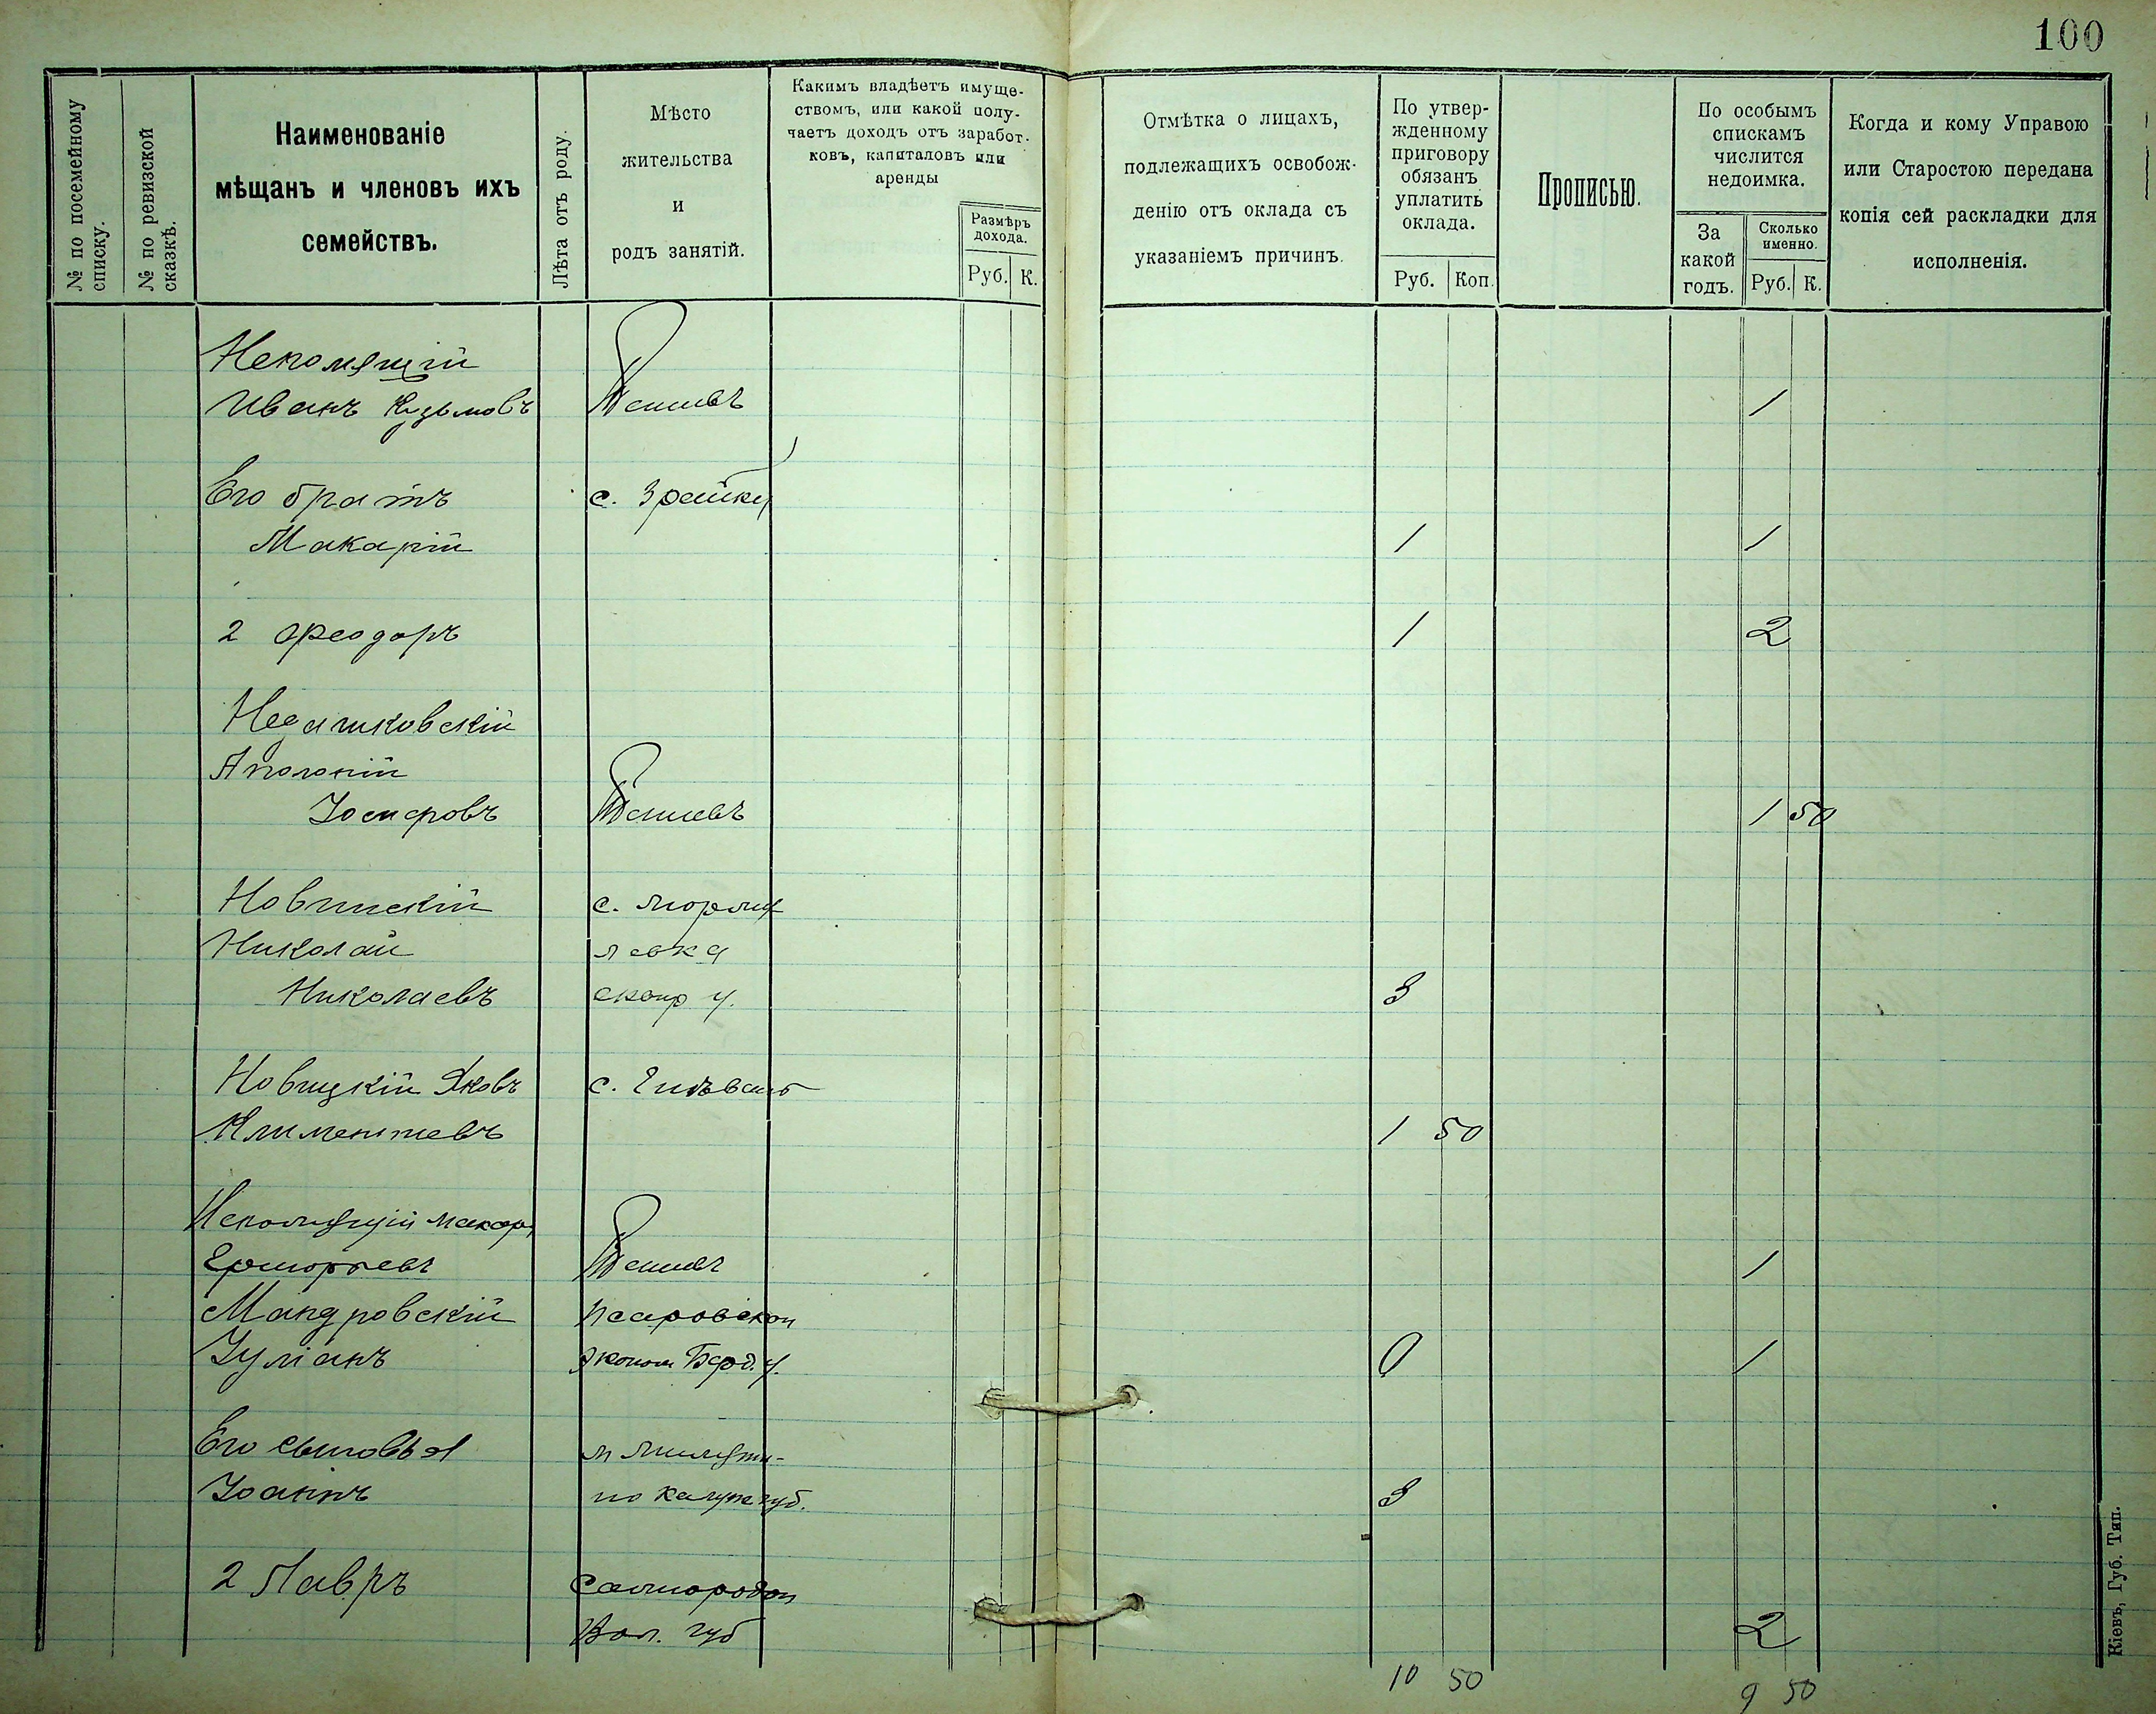 100
№ по посемейному списку.
№ по ревизской сказкѣ.
Наименованіе
мѣщанъ и членовъ ихъ
семействъ.
Лѣта отъ роду.
Мѣсто
жительства
и
родъ занятій.
Какимъ владѣетъ имуще-
ствомъ, или какой полу-
чаетъ доходъ отъ заработ-
ковъ, капиталовъ или
аренды
Размѣръ
дохода.
Руб. К.
Отмѣтка о лицахъ,
подлежащихъ освобож-
денію отъ оклада съ
указаніемъ причинъ.
По утвер-
жденному
приговору
обязанъ
уплатить
оклада.
Руб. Коп.
Прописью.
По особымъ
спискамъ
числится
недоимка.
За
какой
годъ.
Сколько
именно.
Руб. К.
Когда и кому Управою
или Старостою передана
копія сей раскладки для
исполненія.
Непомящій
Иванъ Кузьмовъ 1
Его братъ с.
Макарій 1 1
2 Феодоръ 1 2
Недашковскій
Аполоній
Іосифовъ 1 50
Новинскій с.
Николай левка
Николаевъ сквир у. 3
Новицкій Яковъ с.
Климентіевъ 1 50
Непомящій Макар
1
Мандровскій
Іуліанъ эконом Берд. у. 0 1
Его сыновья м
Іоаннъ но Калуж губ. 3
2 Лавръ Самгородок
Вол. губ 2
10 50 9 50
Кіевъ, Губ. Тип.